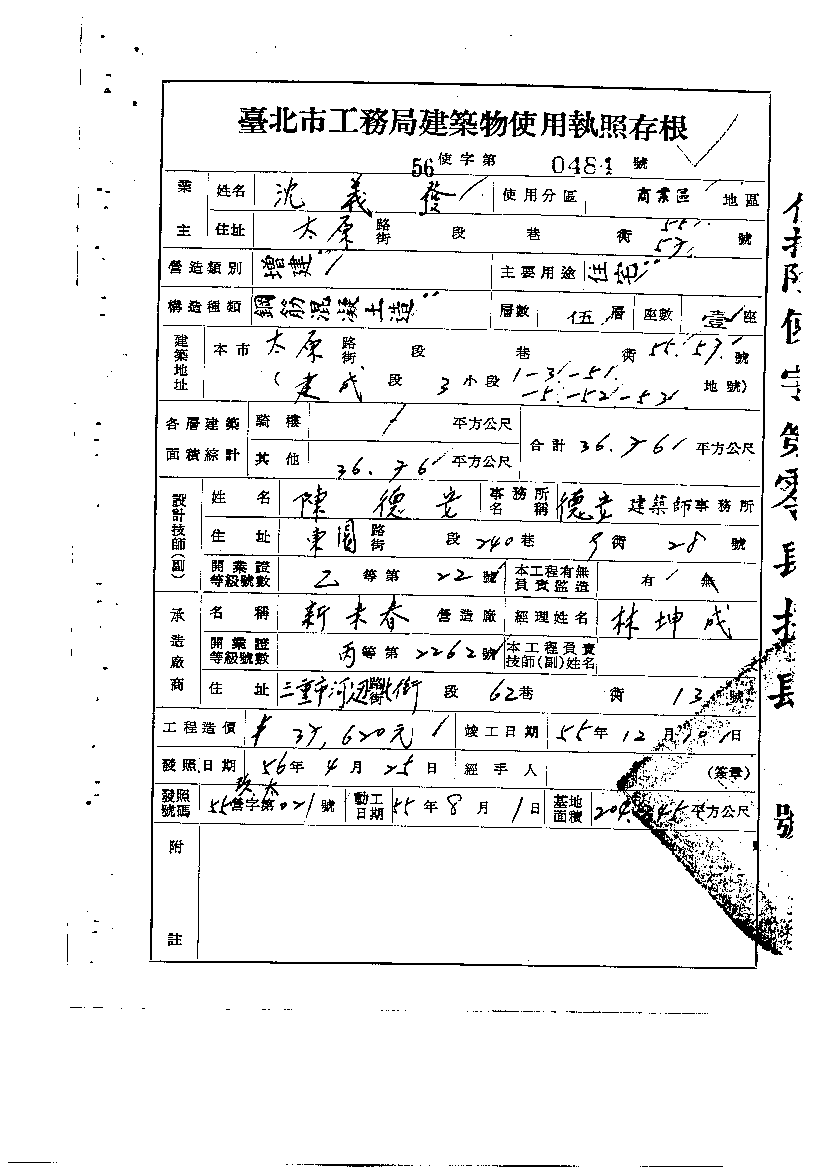 臺北市工務局建築物使用執照存根
56使字第 0484 號
業主 姓名 沈義發 使用分區 商業區 地區
住址 太原 路街 段 巷 街 55. 57. 號
營造類別 增建 主要用途 住宅
構造種類 鋼筋混凝土造 層數 伍 層 座數 壹 座
建築地址 本市 太原 路街 段 巷 街 55. 57. 號
(建成 段 3 小段 1-3 -51 -5 -52 -53 地號)
各層建築面積綜計 騎樓 / 平方公尺 合計 36.761 平方公尺
其他 36.761 平方公尺
設計技師(副) 姓名 陳德安 事務所名稱 德安 建築師事務所
住址 東園 路街 段 240 巷 街 28 號
開業證等級號數 乙 等第 22 號 本工程有無負責監造 有 無
承造廠商 名稱 新木春 營造廠 經理姓名 林坤成
開業證等級號數 丙 等第 2262 號 本工程負責技師(副)姓名
住址 三重市河边北街 路街 段 62 巷 街 13 號
工程造價 37,620元 竣工日期 55年12月10日
發照日期 56年4月25日 經手人 (簽章)
發照號碼 55 營字第021號 動工日期 55年8月1日 基地面積 平方公尺
附註
號